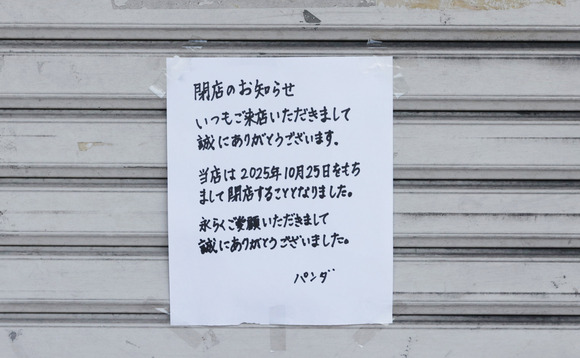 閉店のお知らせ
いつもご来店いただきまして
誠にありがとうございます。
当店は2025年10月25日をもち
まして閉店することとなりました。
永らくご愛顧いただきまして
誠にありがとうございました。
パンダ